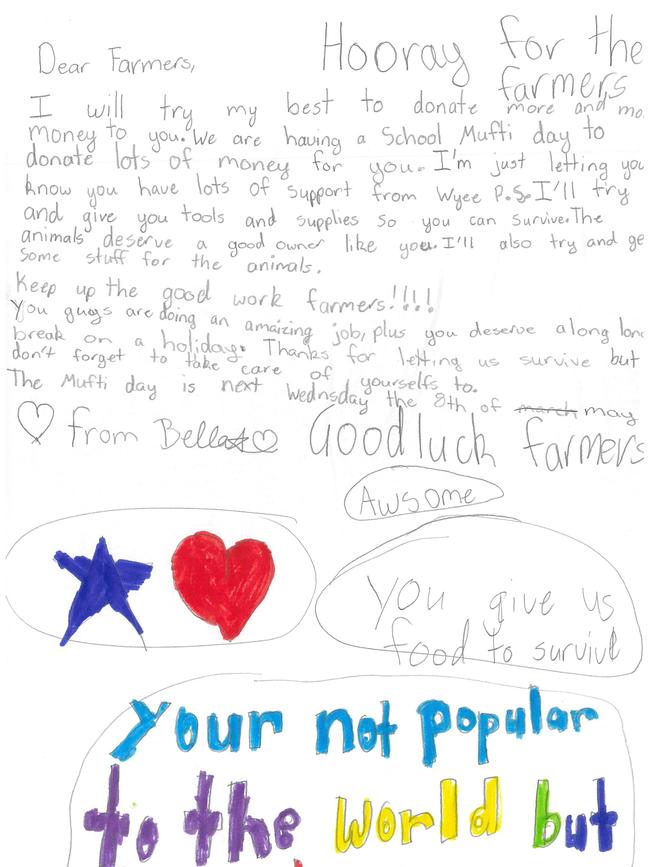 Dear Farmers,
Hooray for the
farmers
I will try my best to donate more and mo
money to you. We are having a School Mufti day to
donate lots of money for you. I'm just letting you
know you have lots of support from Wyee P.S. I'll try
and give you tools and supplies so you can survive. The
animals deserve a good owner like you. I'll also try and ge
some stuff for the animals.
Keep up the good work farmers!!!!
You guys are doing an amaizing job, plus you deserve a long lon
break on a holiday. Thanks for letting us survive but
don't forget to take care of yourselfs to.
The Mufti day is next Wednsday the 8th of march may
♡ from Bella☆♡ Good luck farmers
Awsome
You give us
food to survive
Your not popular
to the world but